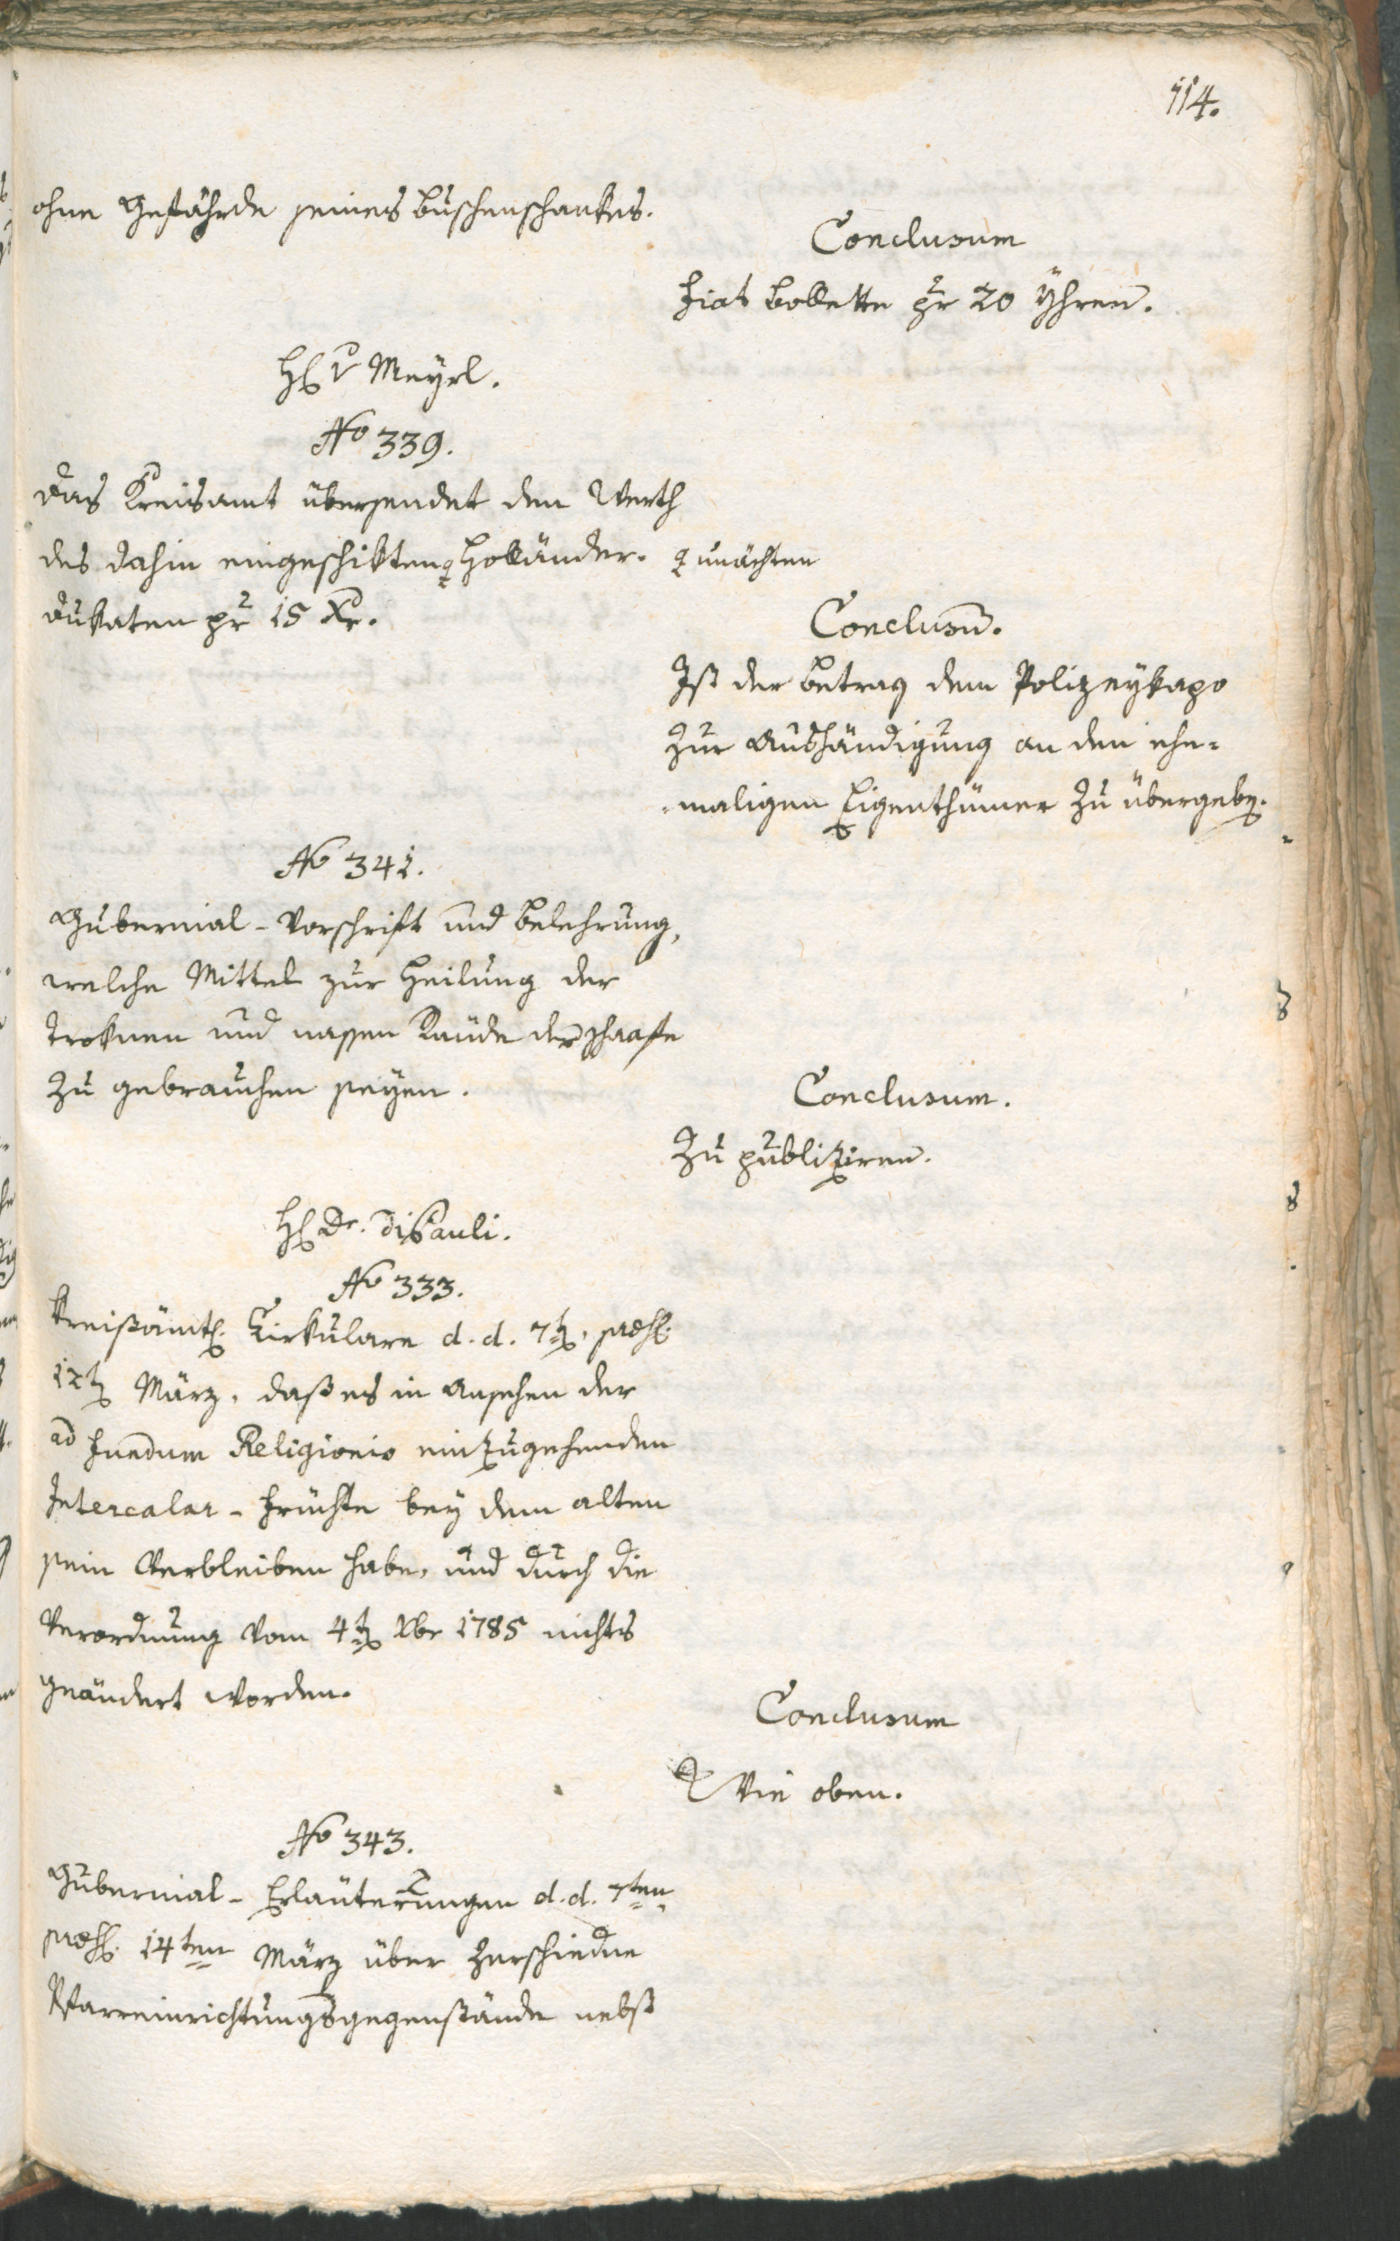 114.
ohne Gefährde seines Buschenschankes.
Conclusum
Fiat Bollette pr 20 Yhren.
H v Meyrl.
No 339.
Das Kreisamt übersendet den Werth
des dahin eingeschikten Holländer-
unächten
Dukaten pr 15 Xr.
Conclusum.
Ist der Betrag dem Polizeykapo
zur Aushändigung an den ehe-
-maligen Eigenthümer zu übergeben.
No 341.
Gubernial-Vorschrift und Belehrung,
welche Mittel zur Heilung der
troknen und nassen Räude der Schaafe
zu gebrauchen seyen.
Conclusum.
Zu publiziren.
H Dr. DiPauli.
No 333.
Kreißämtl. Zirkulare d. d. 7t, praes.
12t März, daß es in Ansehen der
ad Fundum Religionis einzugehenden
Intercalar-Früchte bey dem alten
sein Verbleiben habe, und durch die
Verordnung vom 4t Xbr 1785 nichts
geändert worden.
Conclusum
Wie oben.
No 343.
Gubernial-Erläuterungen d. d. 7ten
praes. 14ten März über verschiedne
Pfarreinrichtungsgegenstände nebst